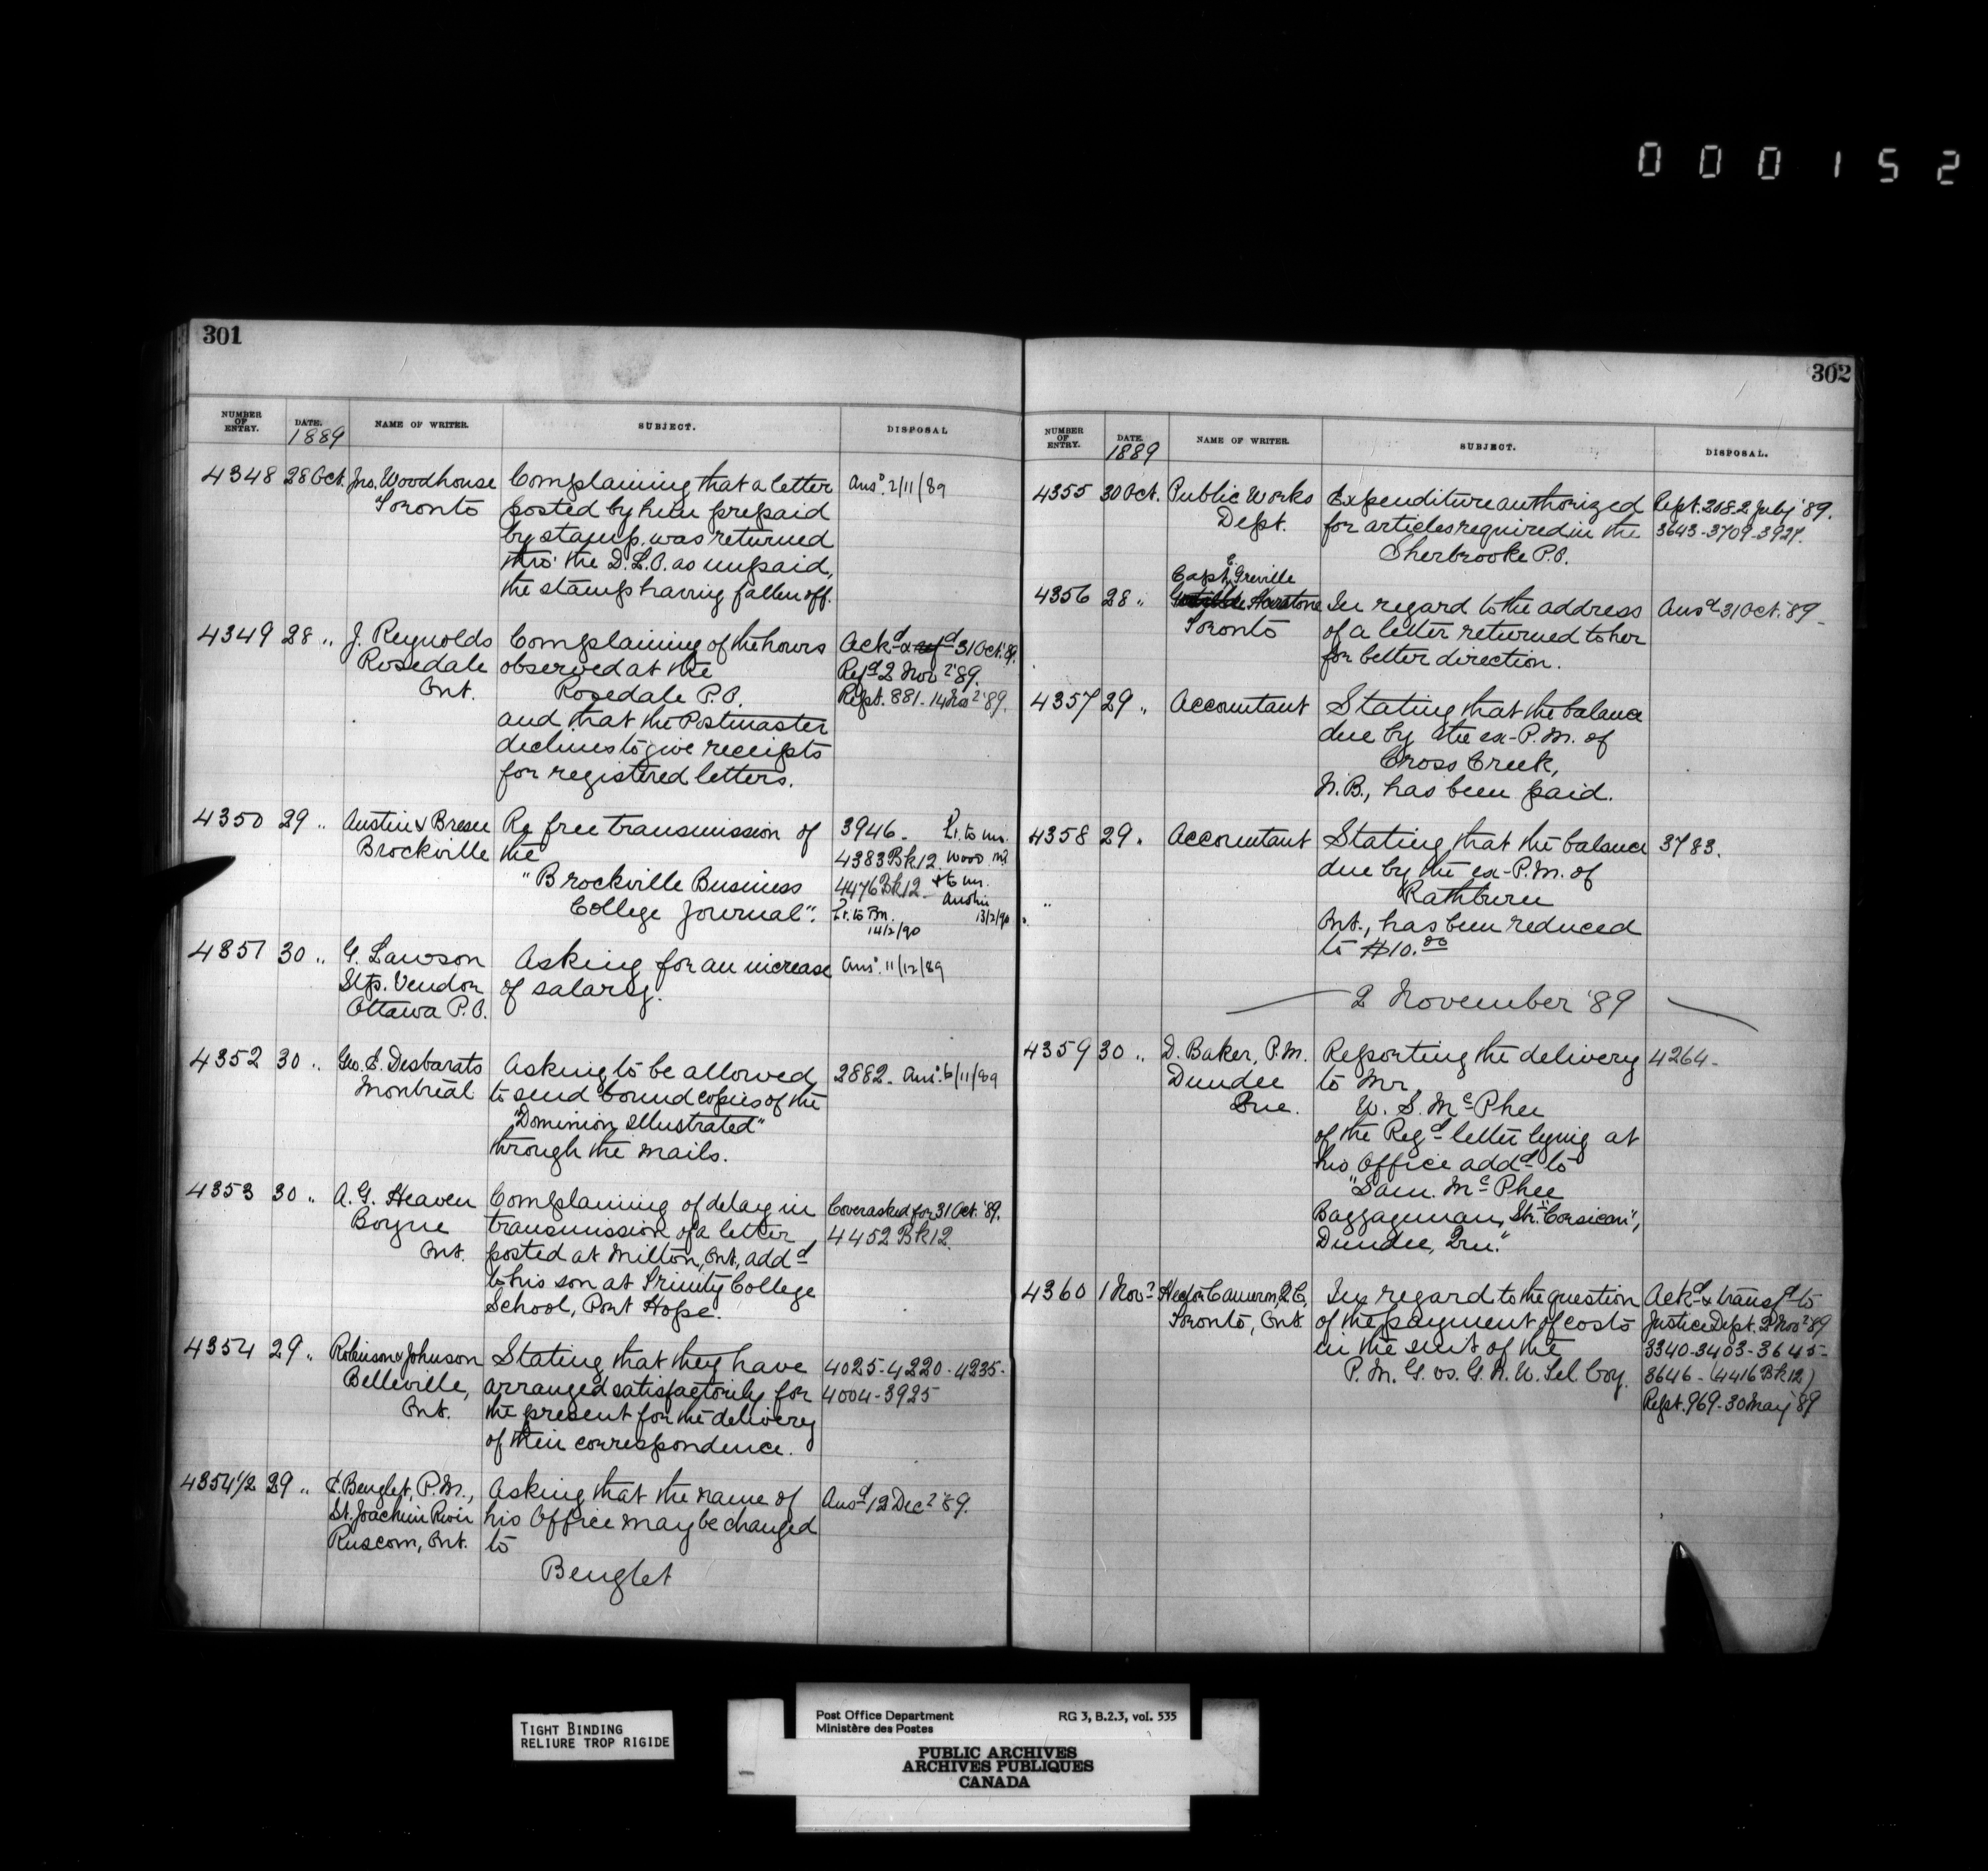 000152
301
NUMBER OF ENTRY. DATE. 1889 NAME OF WRITER. SUBJECT. DISPOSAL
4348 28 Oct. Jno. Woodhouse Complaining that a letter Ansd. 2/11/89
Toronto posted by him prepaid
by stamp, was returned
thro' the D.L.O. as unpaid,
the stamp having fallen off.
4349 28 " J. Reynolds Complaining of the hours Ackd & refd 31 Oct. '89.
Rosedale observed at the Refd 2 Novr '89.
Ont. Rosedale P.O. Rept. 881 - 14 Novr '89.
and that the Postmaster
declines to give receipts
for registered letters.
4350 29 " Austin & Bresee Re free transmission of 3946 - Lr. to Mr.
Brockville the 4383 Bk 12. Wood
"Brockville Business 4476 Bk 12 - & to Mr. Austin
College Journal". Lr. to P.M. 13/2/90
14/2/90
4351 30 " G. Lawson Asking for an increase Ansd. 11/12/89
Stp. Vendor of salary.
Ottawa P.O.
4352 30 " Geo. E. Desbarats Asking to be allowed 2882. Ansd. 6/11/89
Montreal to send bound copies of the
"Dominion Illustrated"
through the mails.
4353 30 " A. G. Heaven Complaining of delay in Cover asked for 31 Oct. '89.
Boyne transmission of a letter 4452 Bk 12.
Ont. posted at Milton, Ont., addd
to his son at Trinity College
School, Port Hope.
4354 29 " Robinson & Johnson Stating that they have 4025 - 4220 - 4235 -
Belleville, arranged satisfactorily for 4004 - 3925
Ont. the present for the delivery
of their correspondence.
4354 1/2 29 " E. Benglet, P.M., Asking that the name of Ansd 12 Decr '89.
St. Joachim River his Office may be changed
Ruscom, Ont. to
Benglet
302
NUMBER OF ENTRY. DATE. 1889 NAME OF WRITER. SUBJECT. DISPOSAL.
4355 30 Oct. Public Works Expenditure authorized Rept. 208. 2 July '89.
Dept. for articles required in the 3643 - 3709 - 3927.
Sherbrooke P.O.
Capt. Greville
4356 28 " Harstone In regard to the address Ansd 31 Oct. '89 -
Toronto of a letter returned to her
for better direction.
4357 29 " Accountant Stating that the balance
due by the ex-P.M. of
Cross Creek,
N.B., has been paid.
4358 29 " Accountant Stating that the balance 3783.
due by the ex-P.M. of
Rathburn
Ont., has been reduced
to $10.00
2 November '89
4359 30 " D. Baker, P.M. Reporting the delivery 4264 -
Dundee to Mr.
Que. W. S. McPhee
of the Regd letter lying at
his Office addd to
"Sam. McPhee
Baggageman, Str. "Corsican",
Dundee, Que."
4360 1 Novr Hector Cameron, Q.C., In regard to the question Ackd & transfd to
Toronto, Ont. of the payment of costs Justice Dept. 2 Novr '89
in the suit of the 3340 - 3403 - 3645 -
P.M.G. vs. G.N.W. Tel. Coy. 3646 - (4416 Bk 12)
Rept. 969 - 30 May '89
TIGHT BINDING
RELIURE TROP RIGIDE
Post Office Department RG 3, B.2.3, vol. 535
Ministère des Postes
PUBLIC ARCHIVES
ARCHIVES PUBLIQUES
CANADA